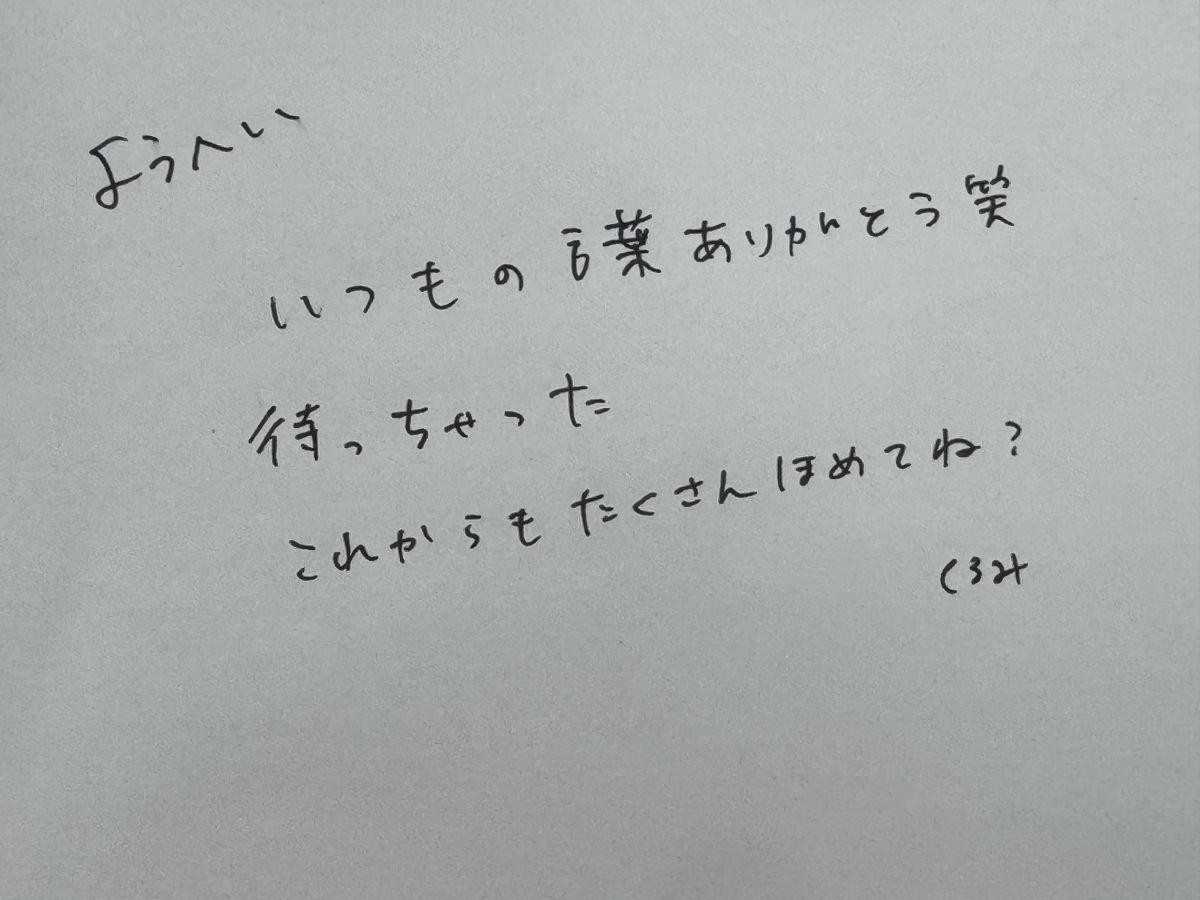 ようへい
いつもの言葉ありがとう笑
待っちゃった
これからもたくさんほめてね?